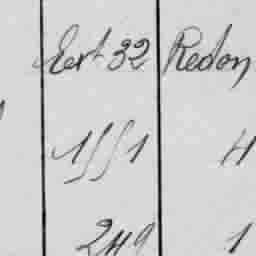 Ext 32 Redon
1551 4
249 1